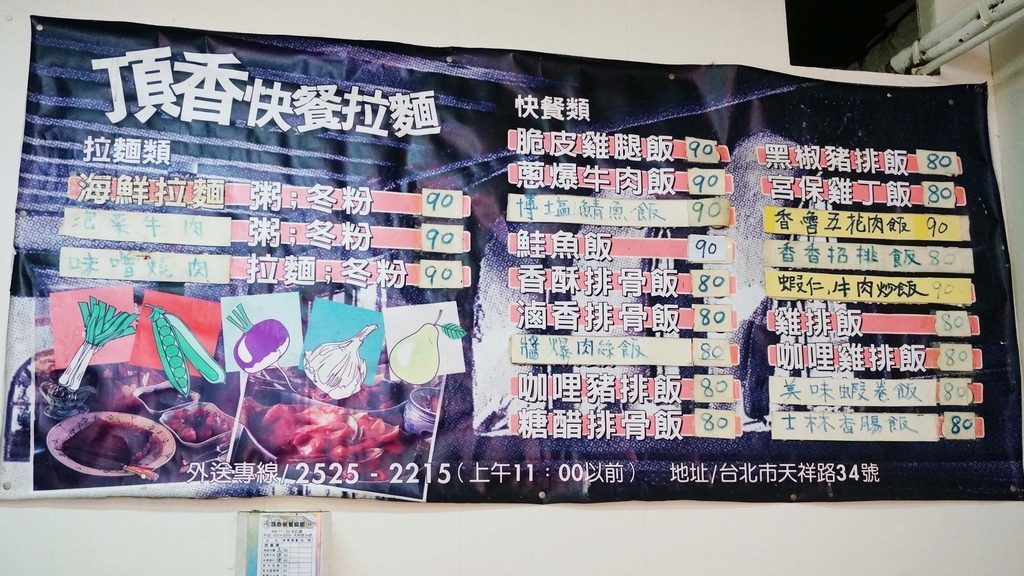 頂香快餐拉麵
拉麵類
海鮮拉麵 粥:冬粉 90
泡菜牛肉 粥:冬粉 90
味噌燒肉 拉麵:冬粉 90
快餐類
脆皮雞腿飯 90
蔥爆牛肉飯 90
博塩鯖魚飯 90
鮭魚飯 90
香酥排骨飯 80
滷香排骨飯 80
醬爆肉絲飯 80
咖哩豬排飯 80
糖醋排骨飯 80
黑椒豬排飯 80
宮保雞丁飯 80
香嚕五花肉飯 90
香香招排飯 80
蝦仁,牛肉炒飯 90
雞排飯 80
咖哩雞排飯 80
美味蝦卷飯 80
士林香腸飯 80
外送專線/2525-2215(上午11:00以前) 地址/台北市天祥路34號
頂香快餐拉麵